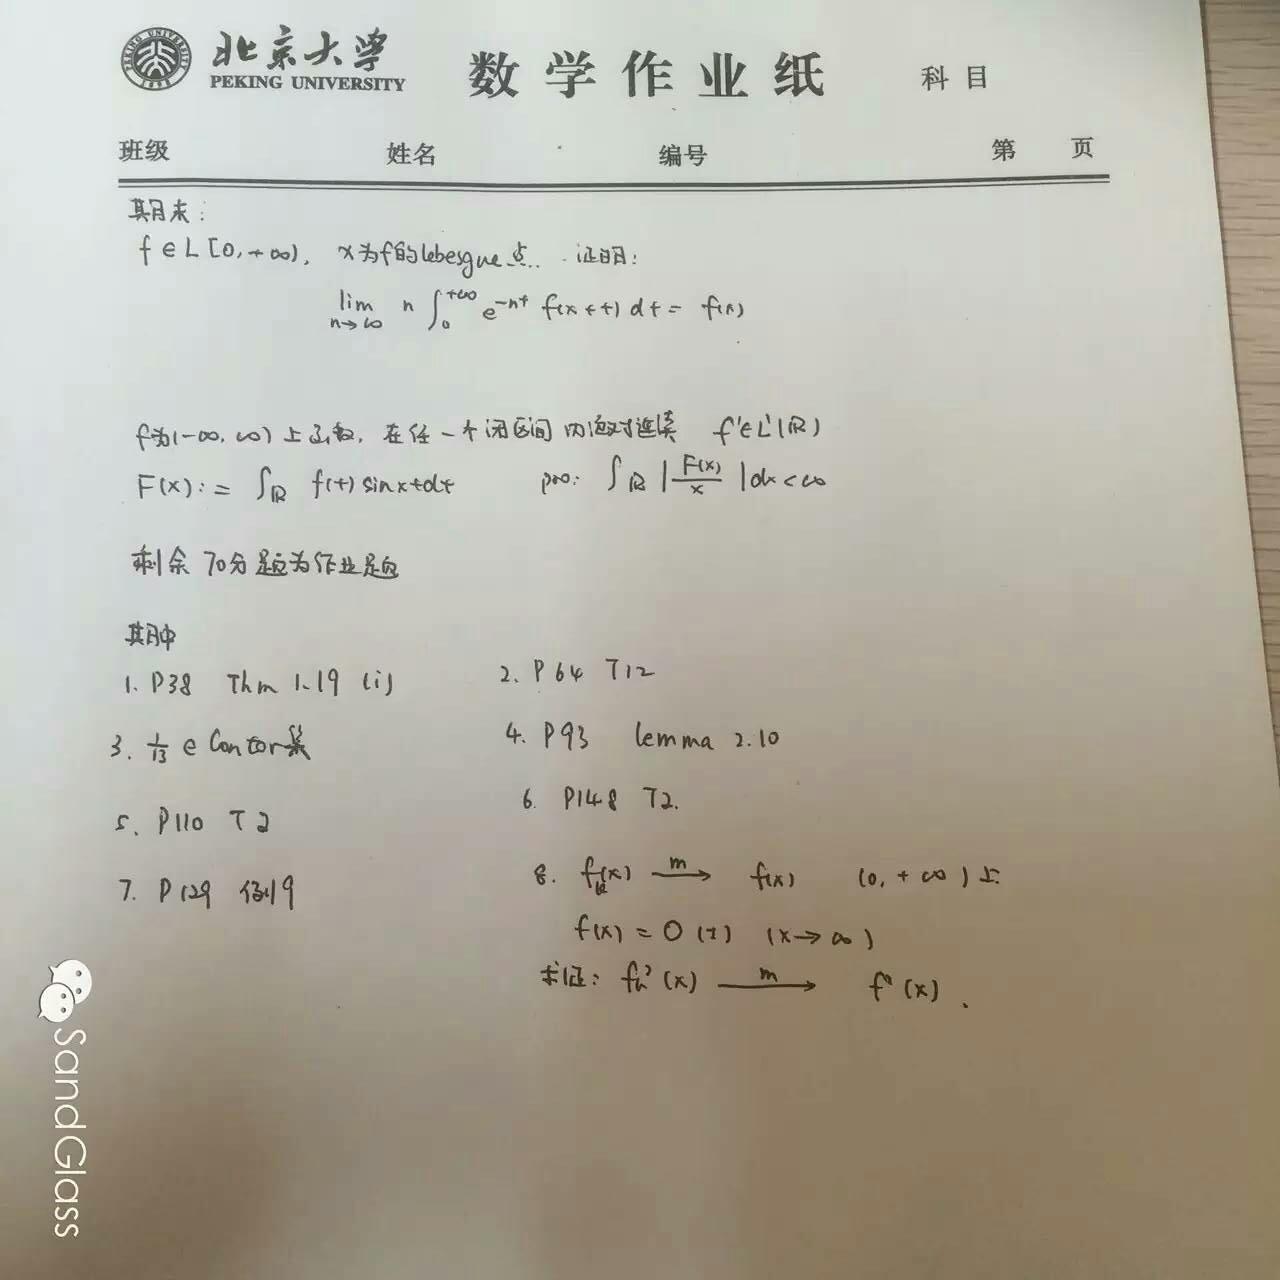 北京大学
PEKING UNIVERSITY
数学作业纸
科目
班级 姓名 编号 第 页
期末:
f ∈ L [0, +∞), x为f的lebesgue点. 证明:
lim n→∞ n ∫₀^{+∞} e^{-nt} f(x+t) dt = f(x)
f为(-∞, ∞) 上函数, 在任一个闭区间内绝对连续 f'∈L'(ℝ)
F(x) := ∫_ℝ f(t) sin xt dt pro: ∫_ℝ |F(x)/x| dx < ∞
剩余 70分题为作业题
期中
1. P38 Thm 1.19 (i) 2. P64 T12
3. 1/13 ∈ Cantor集 4. P93 lemma 2.10
5. P110 T2 6. P148 T2.
7. P129 例9 8. f_k(x) —m→ f(x) (0, +∞) 上
f(x) = O(1) (x→∞)
求证: (x) —m→ (x).
SandGlass